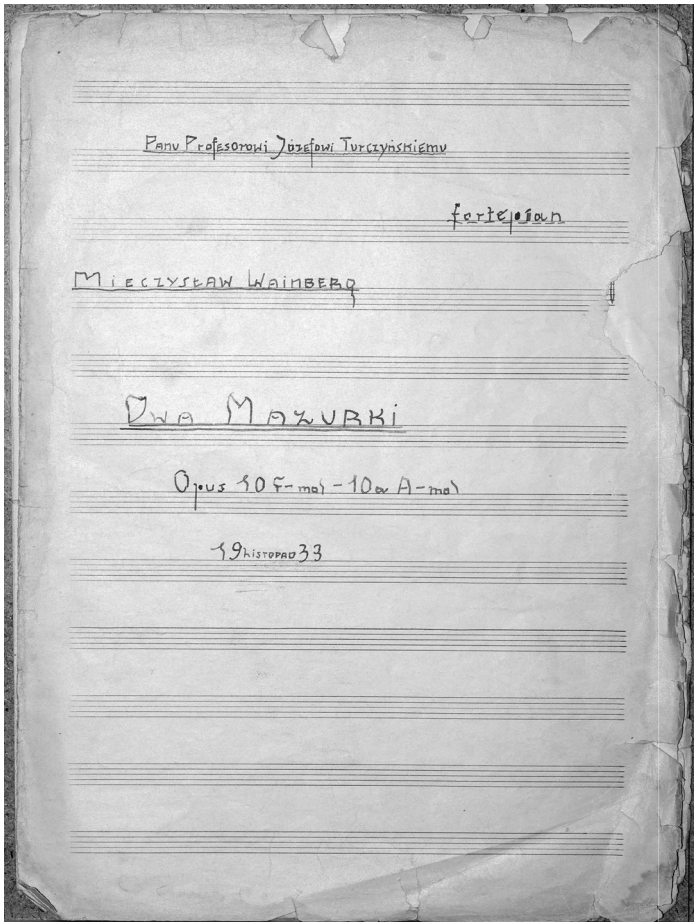 Panu Profesorowi Józefowi Turczyńskiemu
fortepian
Mieczysław Wajnberg
Dwa Mazurki
Opus 10 F-mol - 10a A-mol
19 Listopad 33